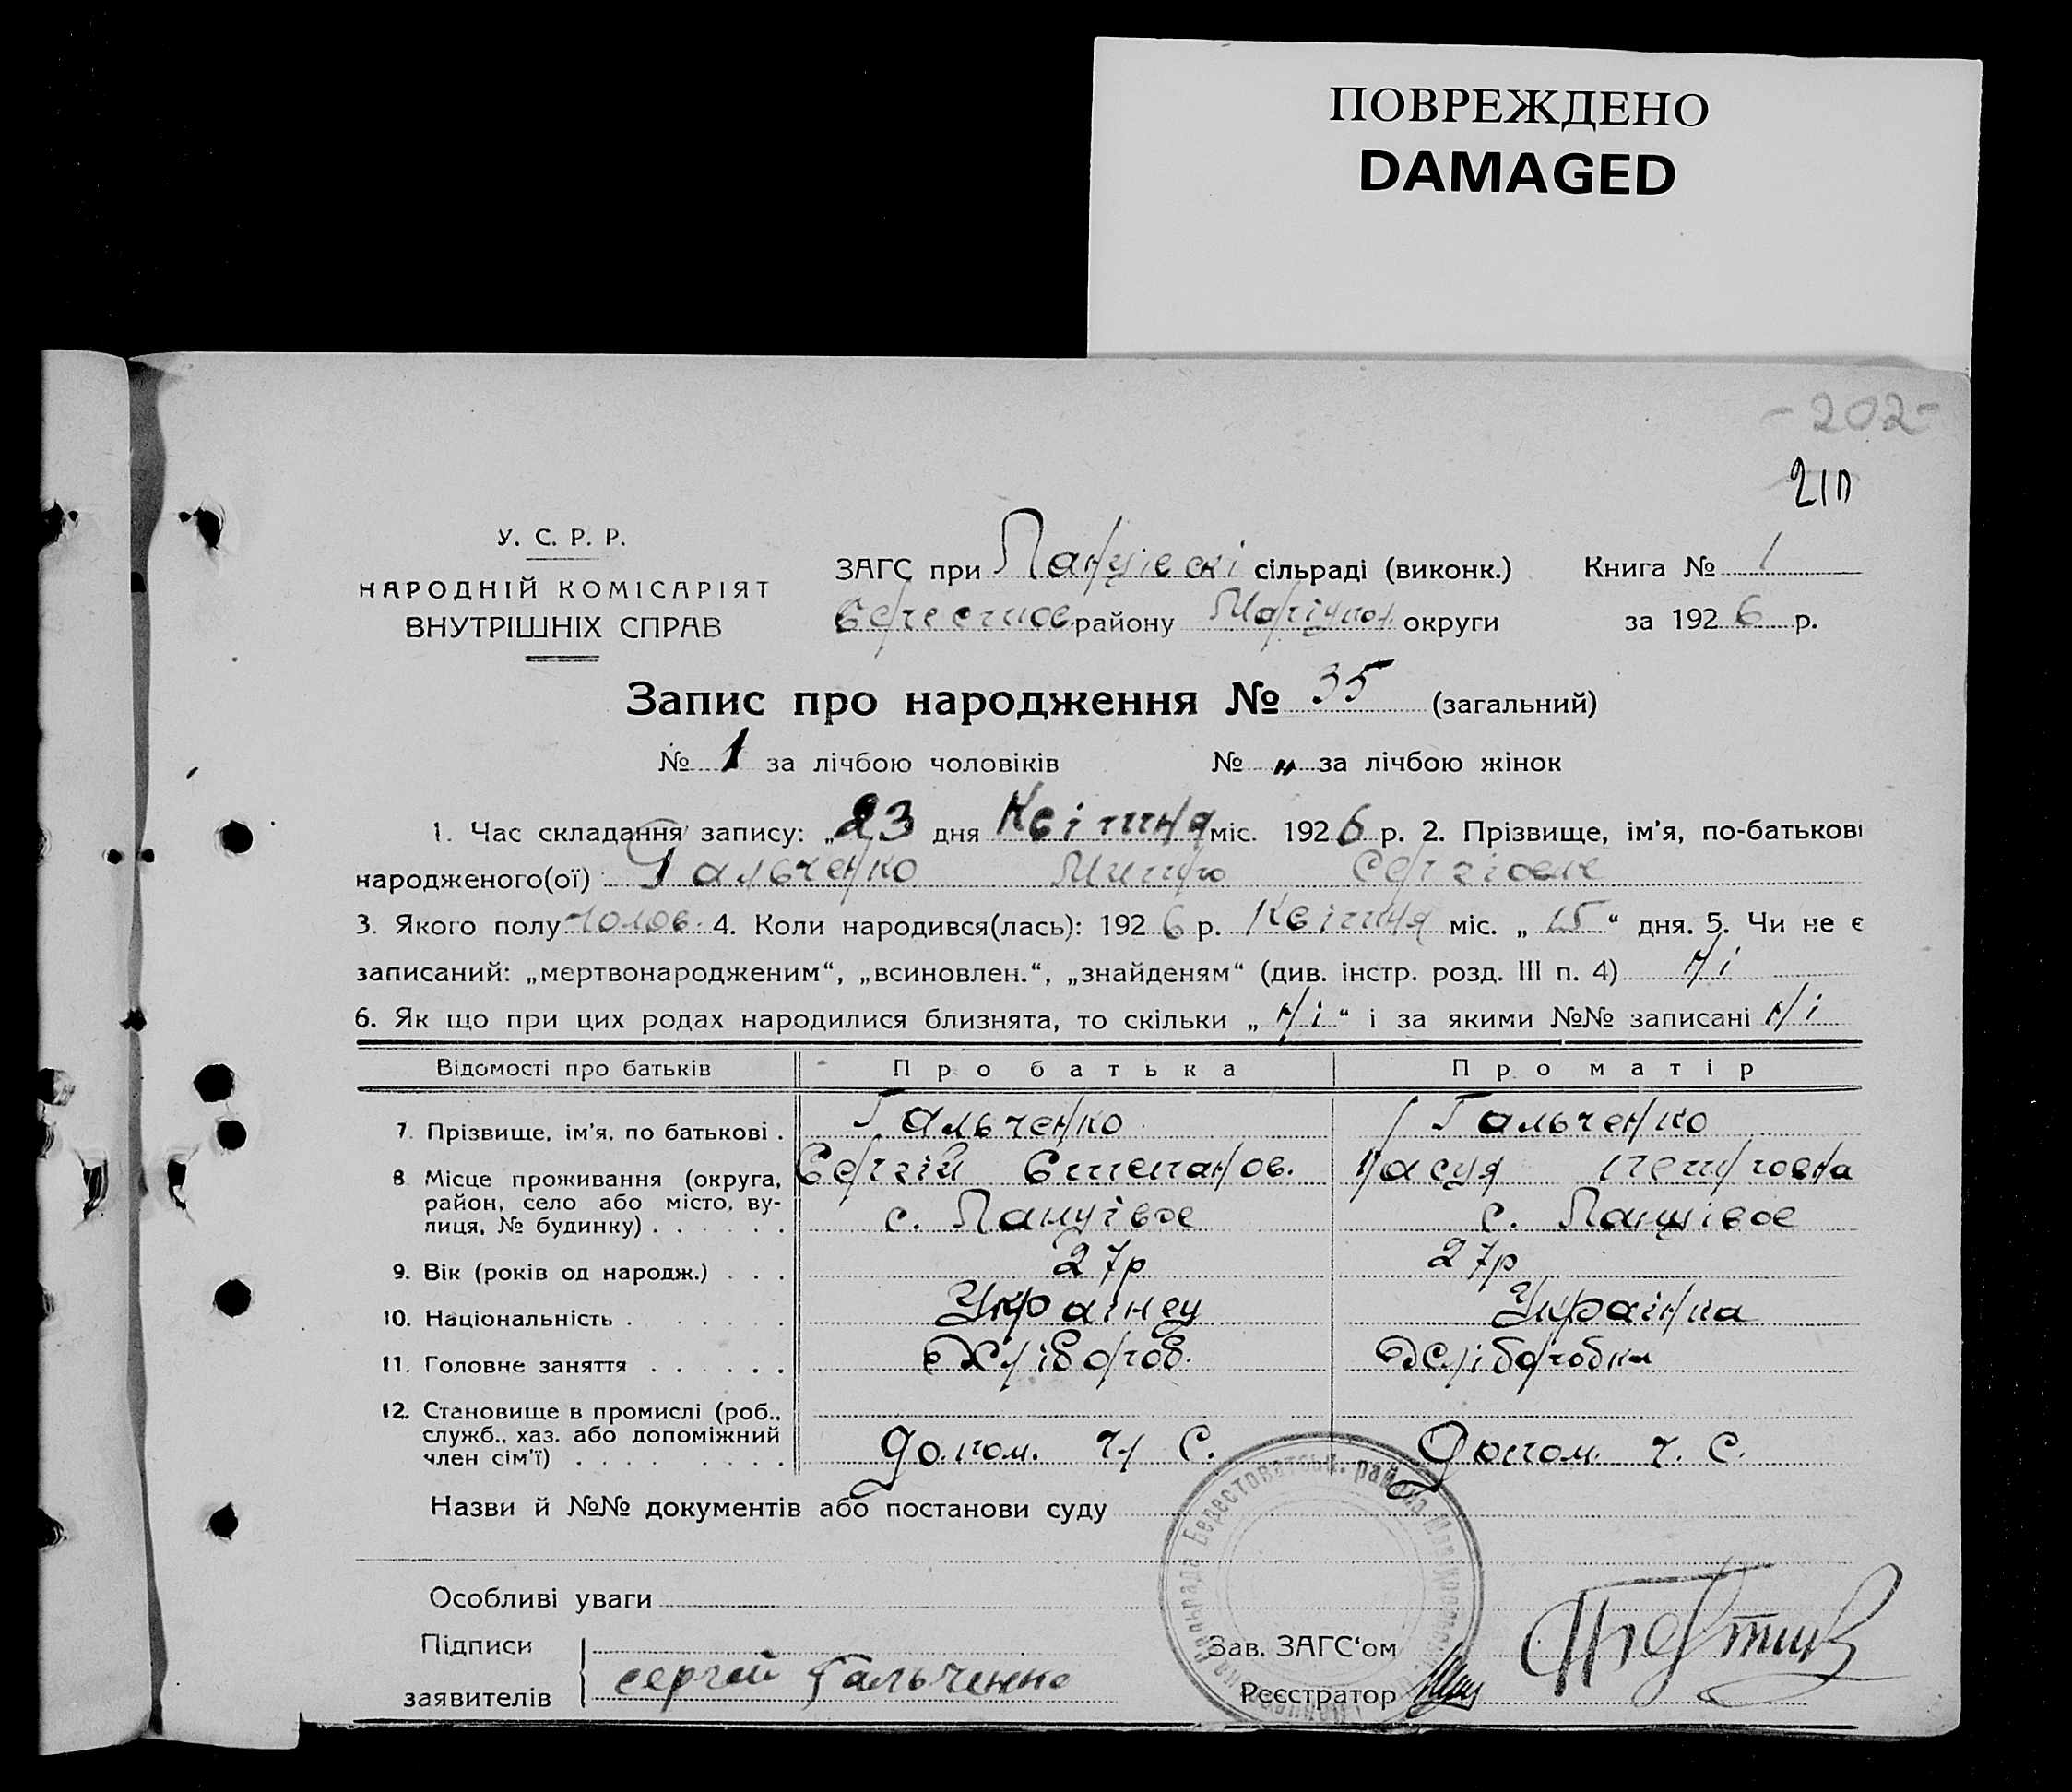 ПОВРЕЖДЕНО
DAMAGED
-202-
210
У. С. Р. Р.
НАРОДНІЙ КОМІСАРІЯТ
ВНУТРІШНІХ СПРАВ
ЗАГС при сільраді (виконк.) Книга № 1
району Маріупол. округи за 1926 р.
Запис про народження № 35 (загальний)
№ 1 за лічбою чоловіків № „ за лічбою жінок
1. Час складання запису: „23 дня Квітня міс. 1926 р. 2. Прізвище, ім'я, по-батькові
народженого(ої) Гальченко Митро
3. Якого полу чолов. 4. Коли народився(лась): 1926 р. Квітня міс. „15“ дня. 5. Чи не є
записаний: „мертвонародженим“, „всиновлен.“, „знайденям“ (див. інстр. розд. III п. 4) Ні
6. Як що при цих родах народилися близнята, то скільки „Ні“ і за якими №№ записані Ні
Відомості про батьків Про батька Про матір
7. Прізвище, ім'я, по батькові . Гальченко Гальченко
Сергій Степанов.
8. Місце проживання (округа, район, село або місто, вулиця, № будинку) . . . . . . с. с.
9. Вік (років од народж.) . . . 27р 27р
10. Національність . . . . . . . Українец Українка
11. Головне заняття . . . . . . Хлібороб. Хлібробка
12. Становище в промислі (роб., служб., хаз. або допоміжний член сім'ї) . . . . . . . . допом. ч. С. Допом. ч. С.
Назви й №№ документів або постанови суду
Особливі уваги
Підписи
заявителів
Сергей Гальченко
Зав. ЗАГС'ом
Реєстратор